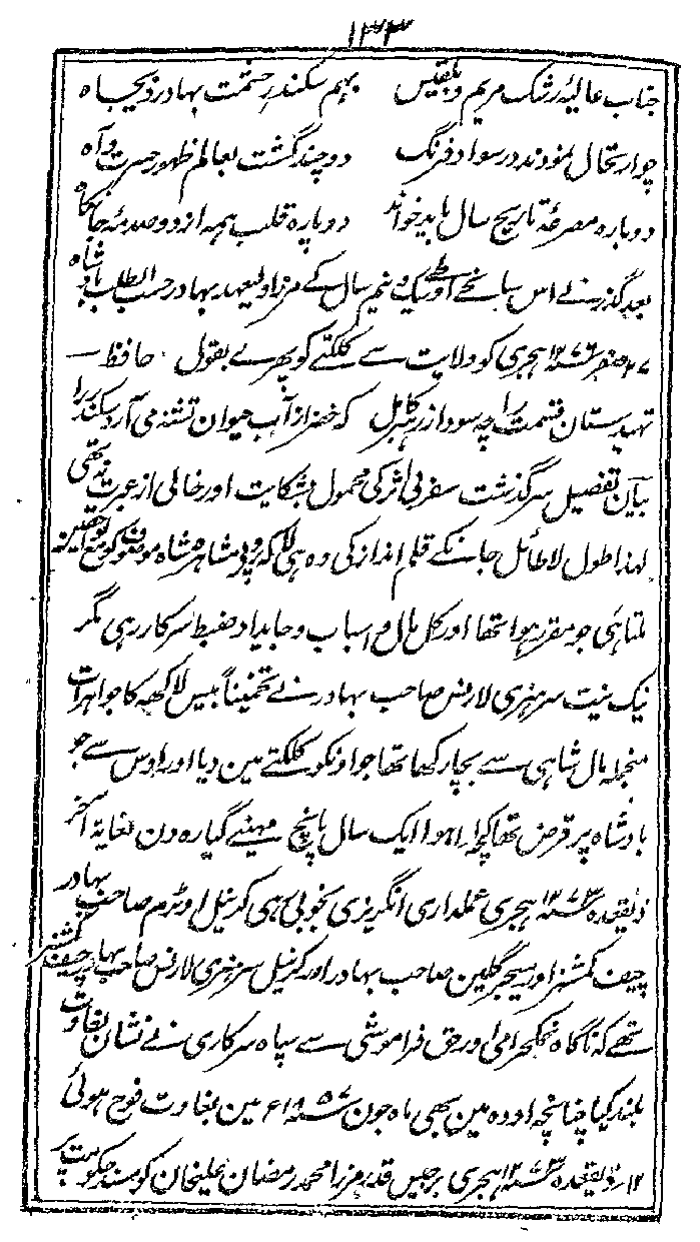 ۱۳۳
جناب عالیۂ رشک مریم و بلقیس بہم سکندر حشمت بہادر ذیجاہ
چو ارتحال نمودند در سواد فرنگ دو چند گشت بعالم ظہور حسرت و آہ
دوبارہ مصرعۂ تاریخ سال باید خواند دوبارہ قلب ہمہ از دو صدمۂ جانکاہ
بعد گذرنے اس سانحے اور یک و نیم سال کے مرزا ولیعہد بہادر حسب الطلب بادشاہ
۲۷ صفر ۱۲۷۶ ہجری کو ولایت سے کلکتے کو پھرے بقول حافظ
تہیدستان قسمت را چہ سود از رہبر کامل کہ خضر از آب حیوان تشنہ می آرد سکندر را
بیان تفصیل سرگذشت سفر بی اثر کی محمول بشکایت اور خالی از عبرت نہ تھی
لہذا طول لاطائل جانکے قلم انداز کی وہ ہی لاکھ روپی مشاہرہ شاہ موصوف کو مع لواحقین
ملتا ہی جو مقرر ہوا تھا اور کل مال و اسباب و جایداد ضبط سرکار رہی مگر
نیک نیت سر ہنری لارنس صاحب بہادر نے تخمیناً بیس لاکھہ کا جواہرات
منجملہ مال شاہی سے بچا رکھا تھا جو اونکو کلکتے مین دیا اور اوس سے جو
بادشاہ پر قرض تھا کچھ ادا ہوا ایک سال پانچ مہینے گیارہ دن لغایۃ آخر
ذیقعدہ ۱۲۷۳ ہجری عملداری انگریزی بخوبی رہی کرنیل اوٹرم صاحب بہادر
چیف کمشنر اور میجر گلین صاحب بہادر اور کرنیل سر ہنری لارنس صاحب بہادر چیف کمشنر
تھے کہ ناگاہ نمکحرامی اور حق فراموشی سے سپاہ سرکاری نے نشان بغاوت
بلند کیا چنانچہ اودہ مین بھی ماہ جون ۱۸۵۷ء مین بغاوت فوج ہوئی
۱۲ ذیقعدہ ۱۲۷۳ ہجری برجیس قدر مرزا محمد رمضان علیخان کو مسند حکومت پر